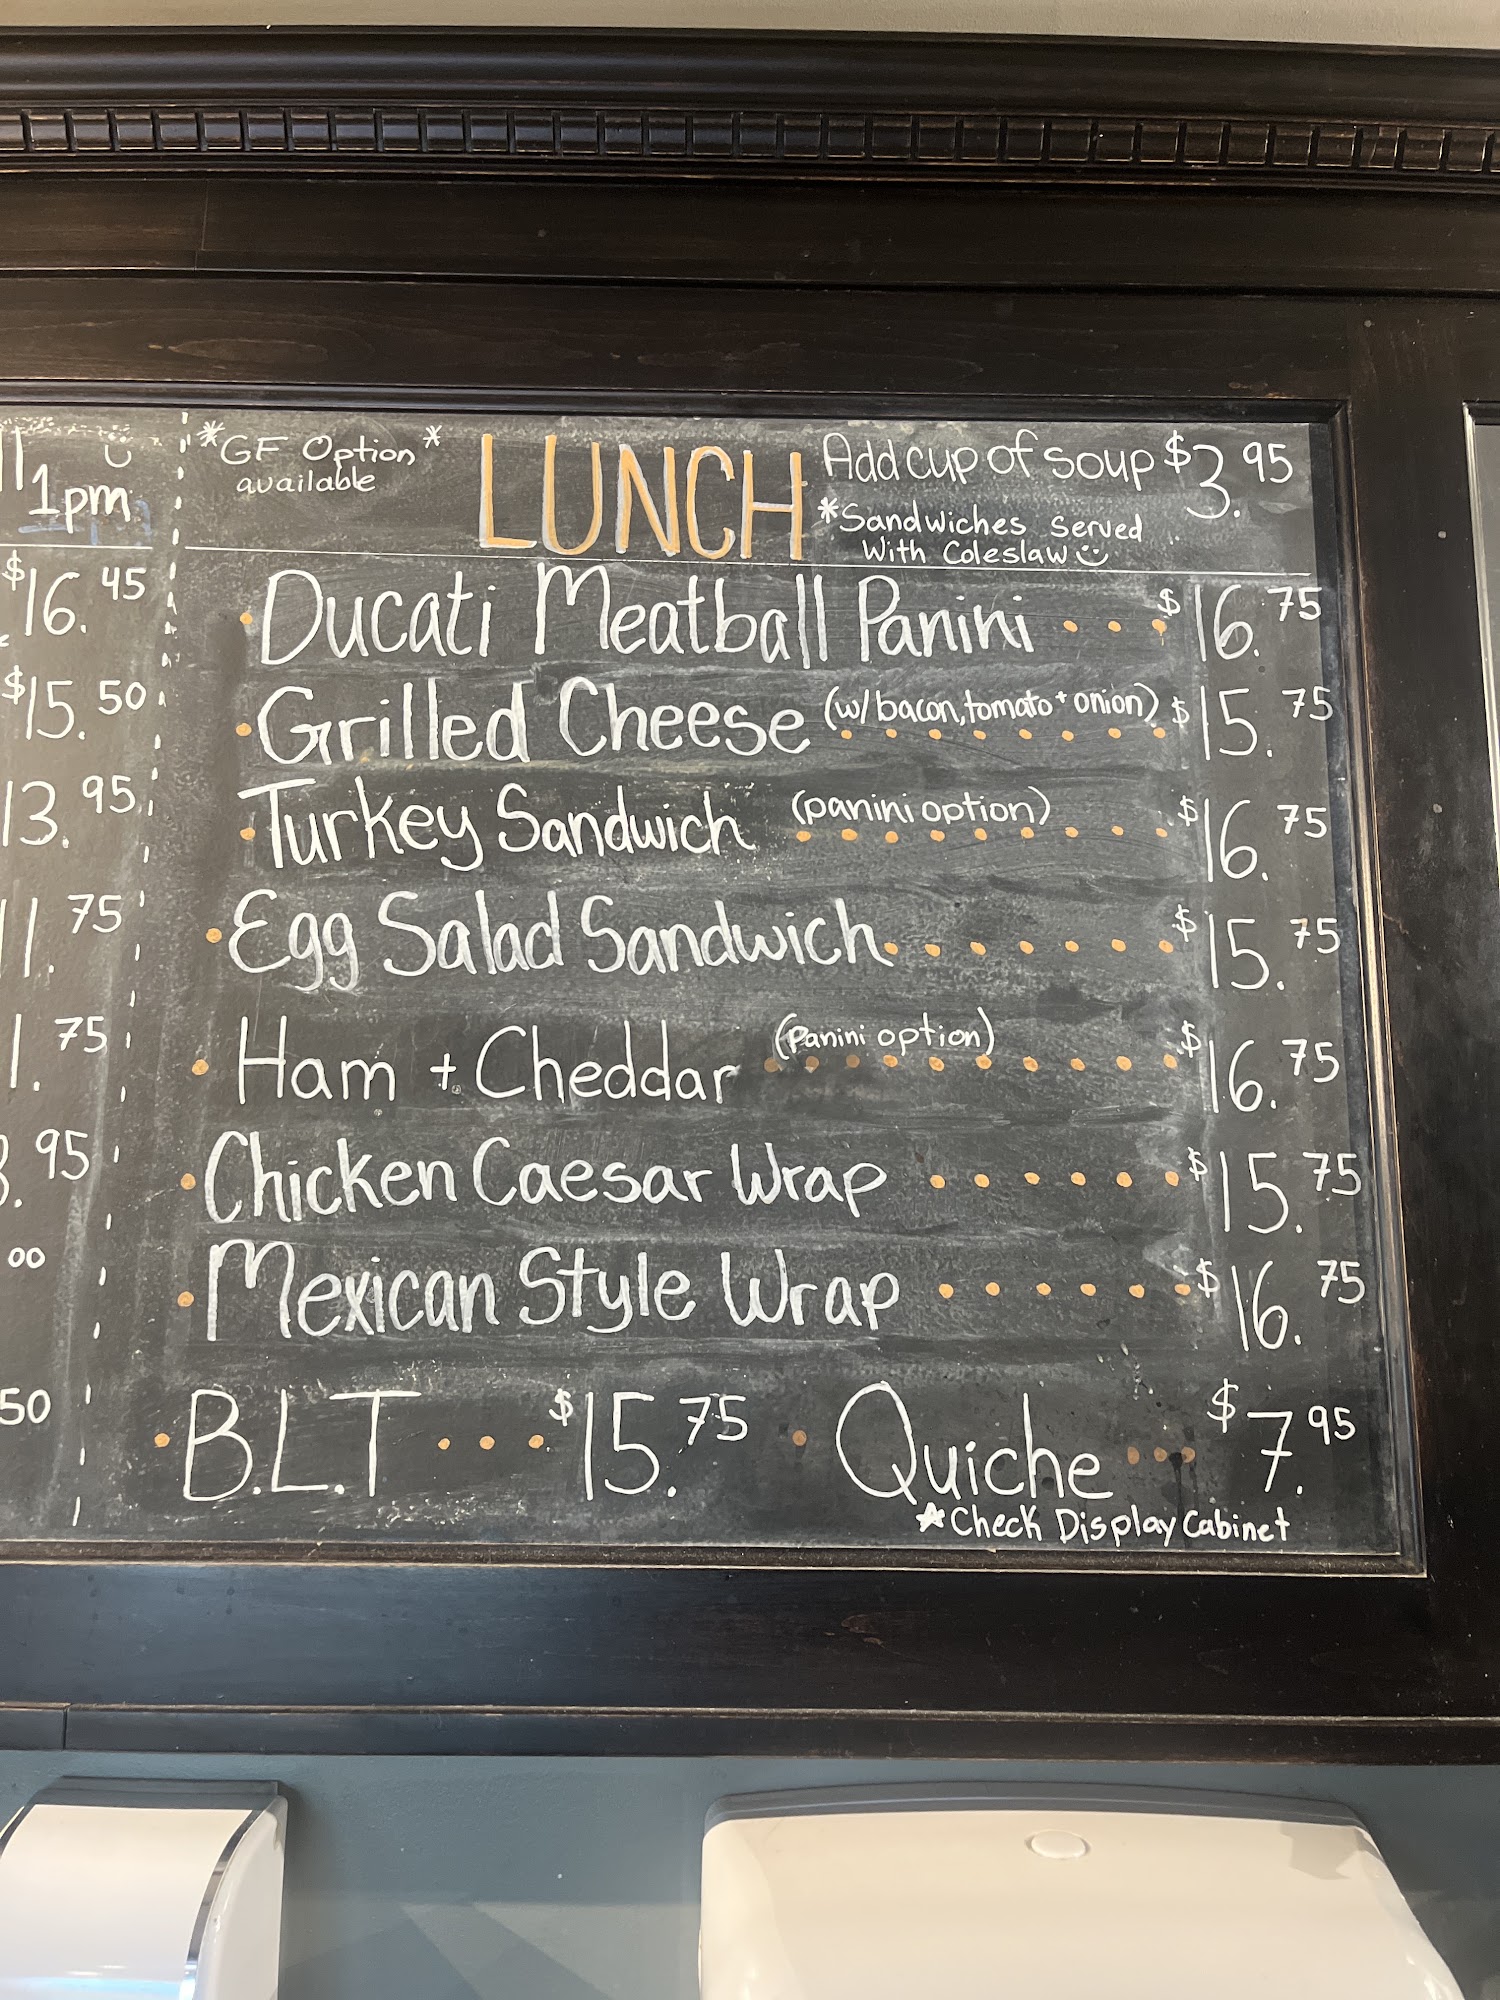 1pm
$16.45
$15.50
13.95
75
75
95
00
50
*GF Option*
available
LUNCH
Add cup of soup $3.95
*Sandwiches served
With Coleslaw
Ducati Meatball Panini $16.75
Grilled Cheese (w/ bacon, tomato + onion) $15.75
Turkey Sandwich (panini option) $16.75
Egg Salad Sandwich $15.75
Ham + Cheddar (panini option) $16.75
Chicken Caesar Wrap $15.75
Mexican Style Wrap $16.75
B.L.T $15.75 Quiche $7.95
*Check Display Cabinet